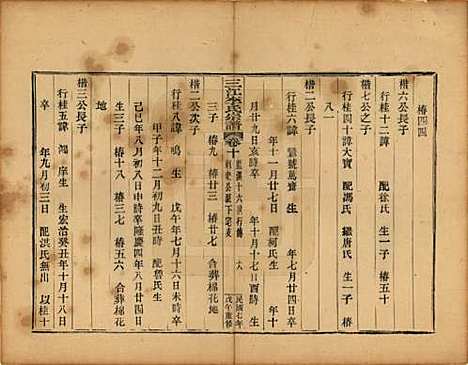 椿四四
楷六公長子
行桂十二諱 配徐氏 生一子 椿五十
楷七公之子
行桂四十諱大寶 配馮氏 繼唐氏 生一子 椿
八一
楷 公長子
行桂六諱 號萬齋 生 年七月廿四日卒
年十一月廿七日 配柯氏生 年十
月廿九日亥時卒 年十月十七日酉時 生
三子 椿九 椿廿三 椿廿七 合葬棉花地
三江李氏宗譜 卷十 民國七年戊午重修
楷二公次子
行桂八諱 鳴生 戊午年七月十六日未時卒
甲子年十二月初九日丑時 配魯氏生
己巳年八月初八日申時卒隆慶四年八月廿四日
生三子 椿十八 椿三七 椿五六 合葬棉花
地
楷三公長子
行桂五諱 鴻序生 生宏治癸丑年十月十八日
卒 年九月初三日 配洪氏無出 以桂十